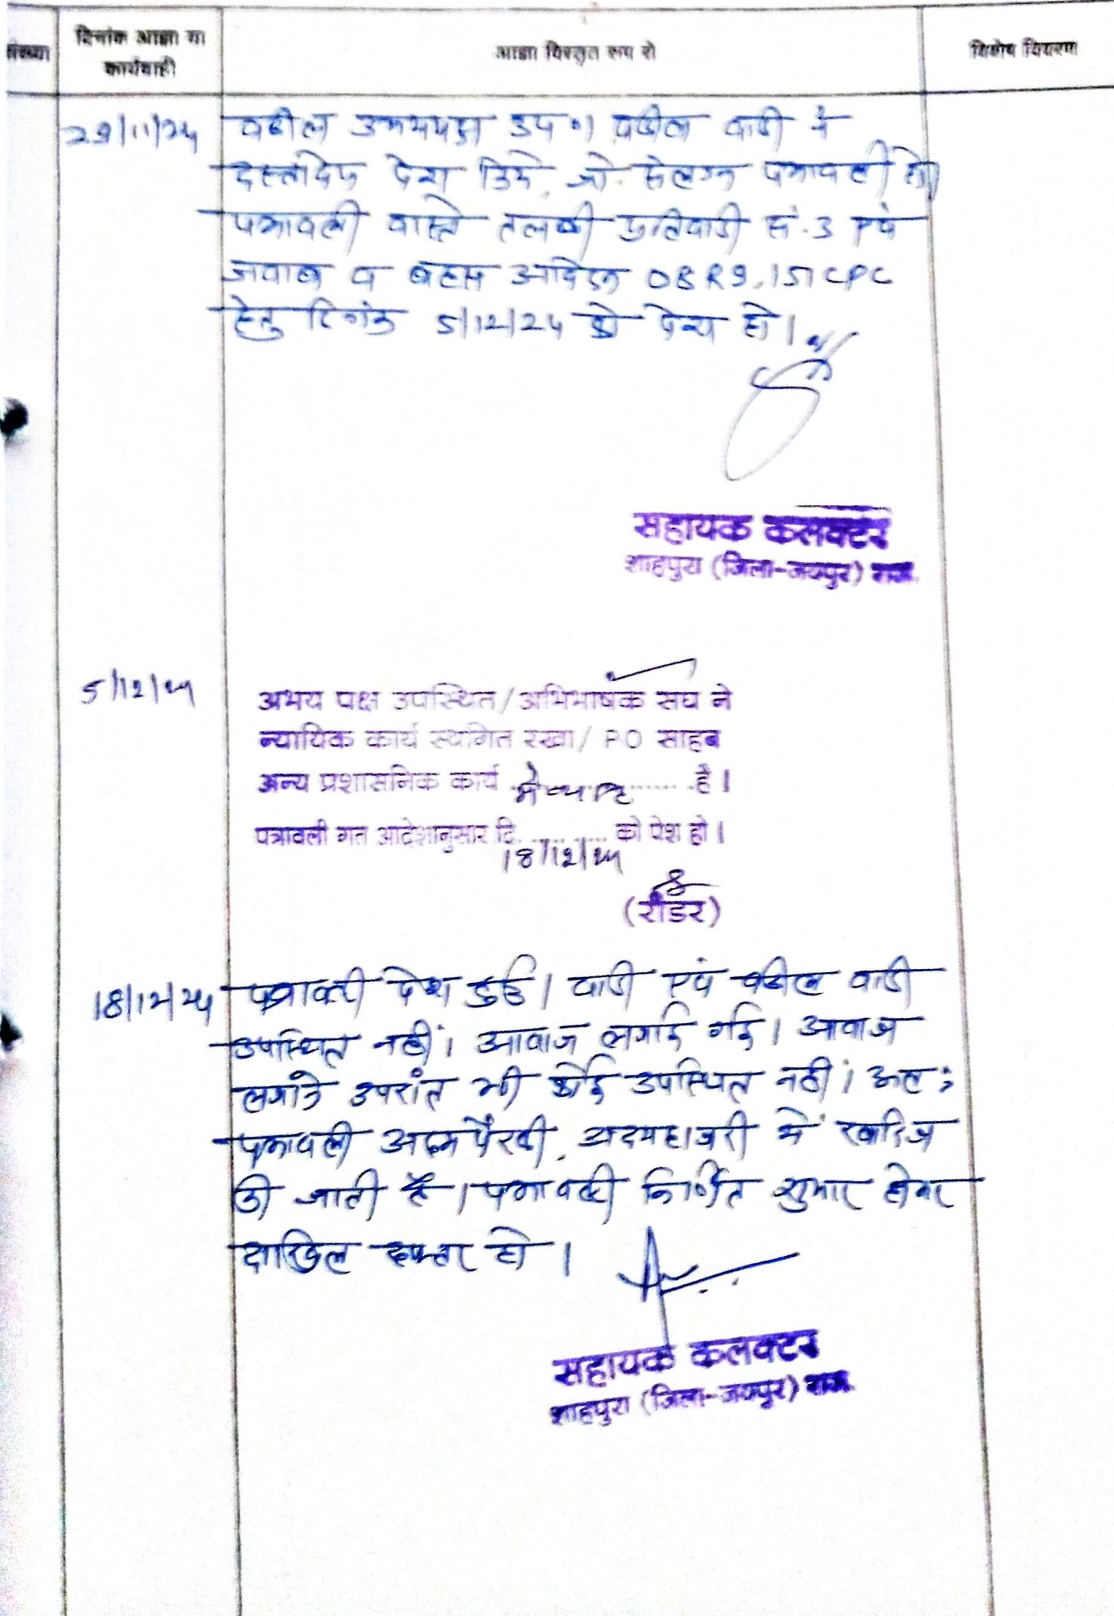 संख्या
दिनांक आज्ञा या
कार्यवाही
आज्ञा विस्तृत रूप से
विशेष विवरण
29/11/24
वकील उभयपक्ष उप०। वकील वादी ने
दस्तावेज पेश किये, जो संलग्न पत्रावली हो।
पत्रावली वास्ते तलबी प्रतिवादी सं. 3 एवं
जवाब व बहस आवेदन O8 R9, 151 CPC
हेतु दिनांक 5/12/24 को पेश हो।
सहायक कलक्टर
शाहपुरा (जिला-जयपुर) राज.
5/12/24
अभय पक्ष उपस्थित/अभिभाषक संघ ने
न्यायिक कार्य स्थगित रखा/ P.O साहब
अन्य प्रशासनिक कार्य में व्यस्त है।
पत्रावली गत आदेशानुसार दि. 18/12/24 को पेश हो।
(रीडर)
18/12/24
पत्रावली पेश हुई। वादी एवं वकील वादी
उपस्थित नहीं। आवाज लगाई गई। आवाज
लगाने उपरांत भी कोई उपस्थित नहीं। अतः
पत्रावली अदम पैरवी, अदमहाजरी में खारिज
की जाती है। पत्रावली निर्णित शुमार होकर
दाखिल दफ्तर हो।
सहायक कलक्टर
शाहपुरा (जिला-जयपुर) राज.